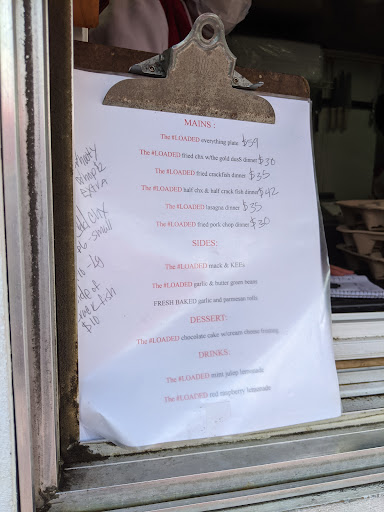 MAINS :
The #LOADED everything plate $59
The #LOADED fried chx w/the gold dusS dinner $30
The #LOADED fried crackfish dinner $35
The #LOADED half chx & half crack fish dinner $42
The #LOADED lasagna dinner $35
The #LOADED fried pork chop dinner $30
SIDES:
The #LOADED mack & KEEs
The #LOADED garlic & butter green beans
FRESH BAKED garlic and parmesan rolls
DESSERT:
The #LOADED chocolate cake w/cream cheese frosting
DRINKS:
The #LOADED mint julep lemonade
The #LOADED red raspberry lemonade
Extra
chx
small
lg
fish
$10